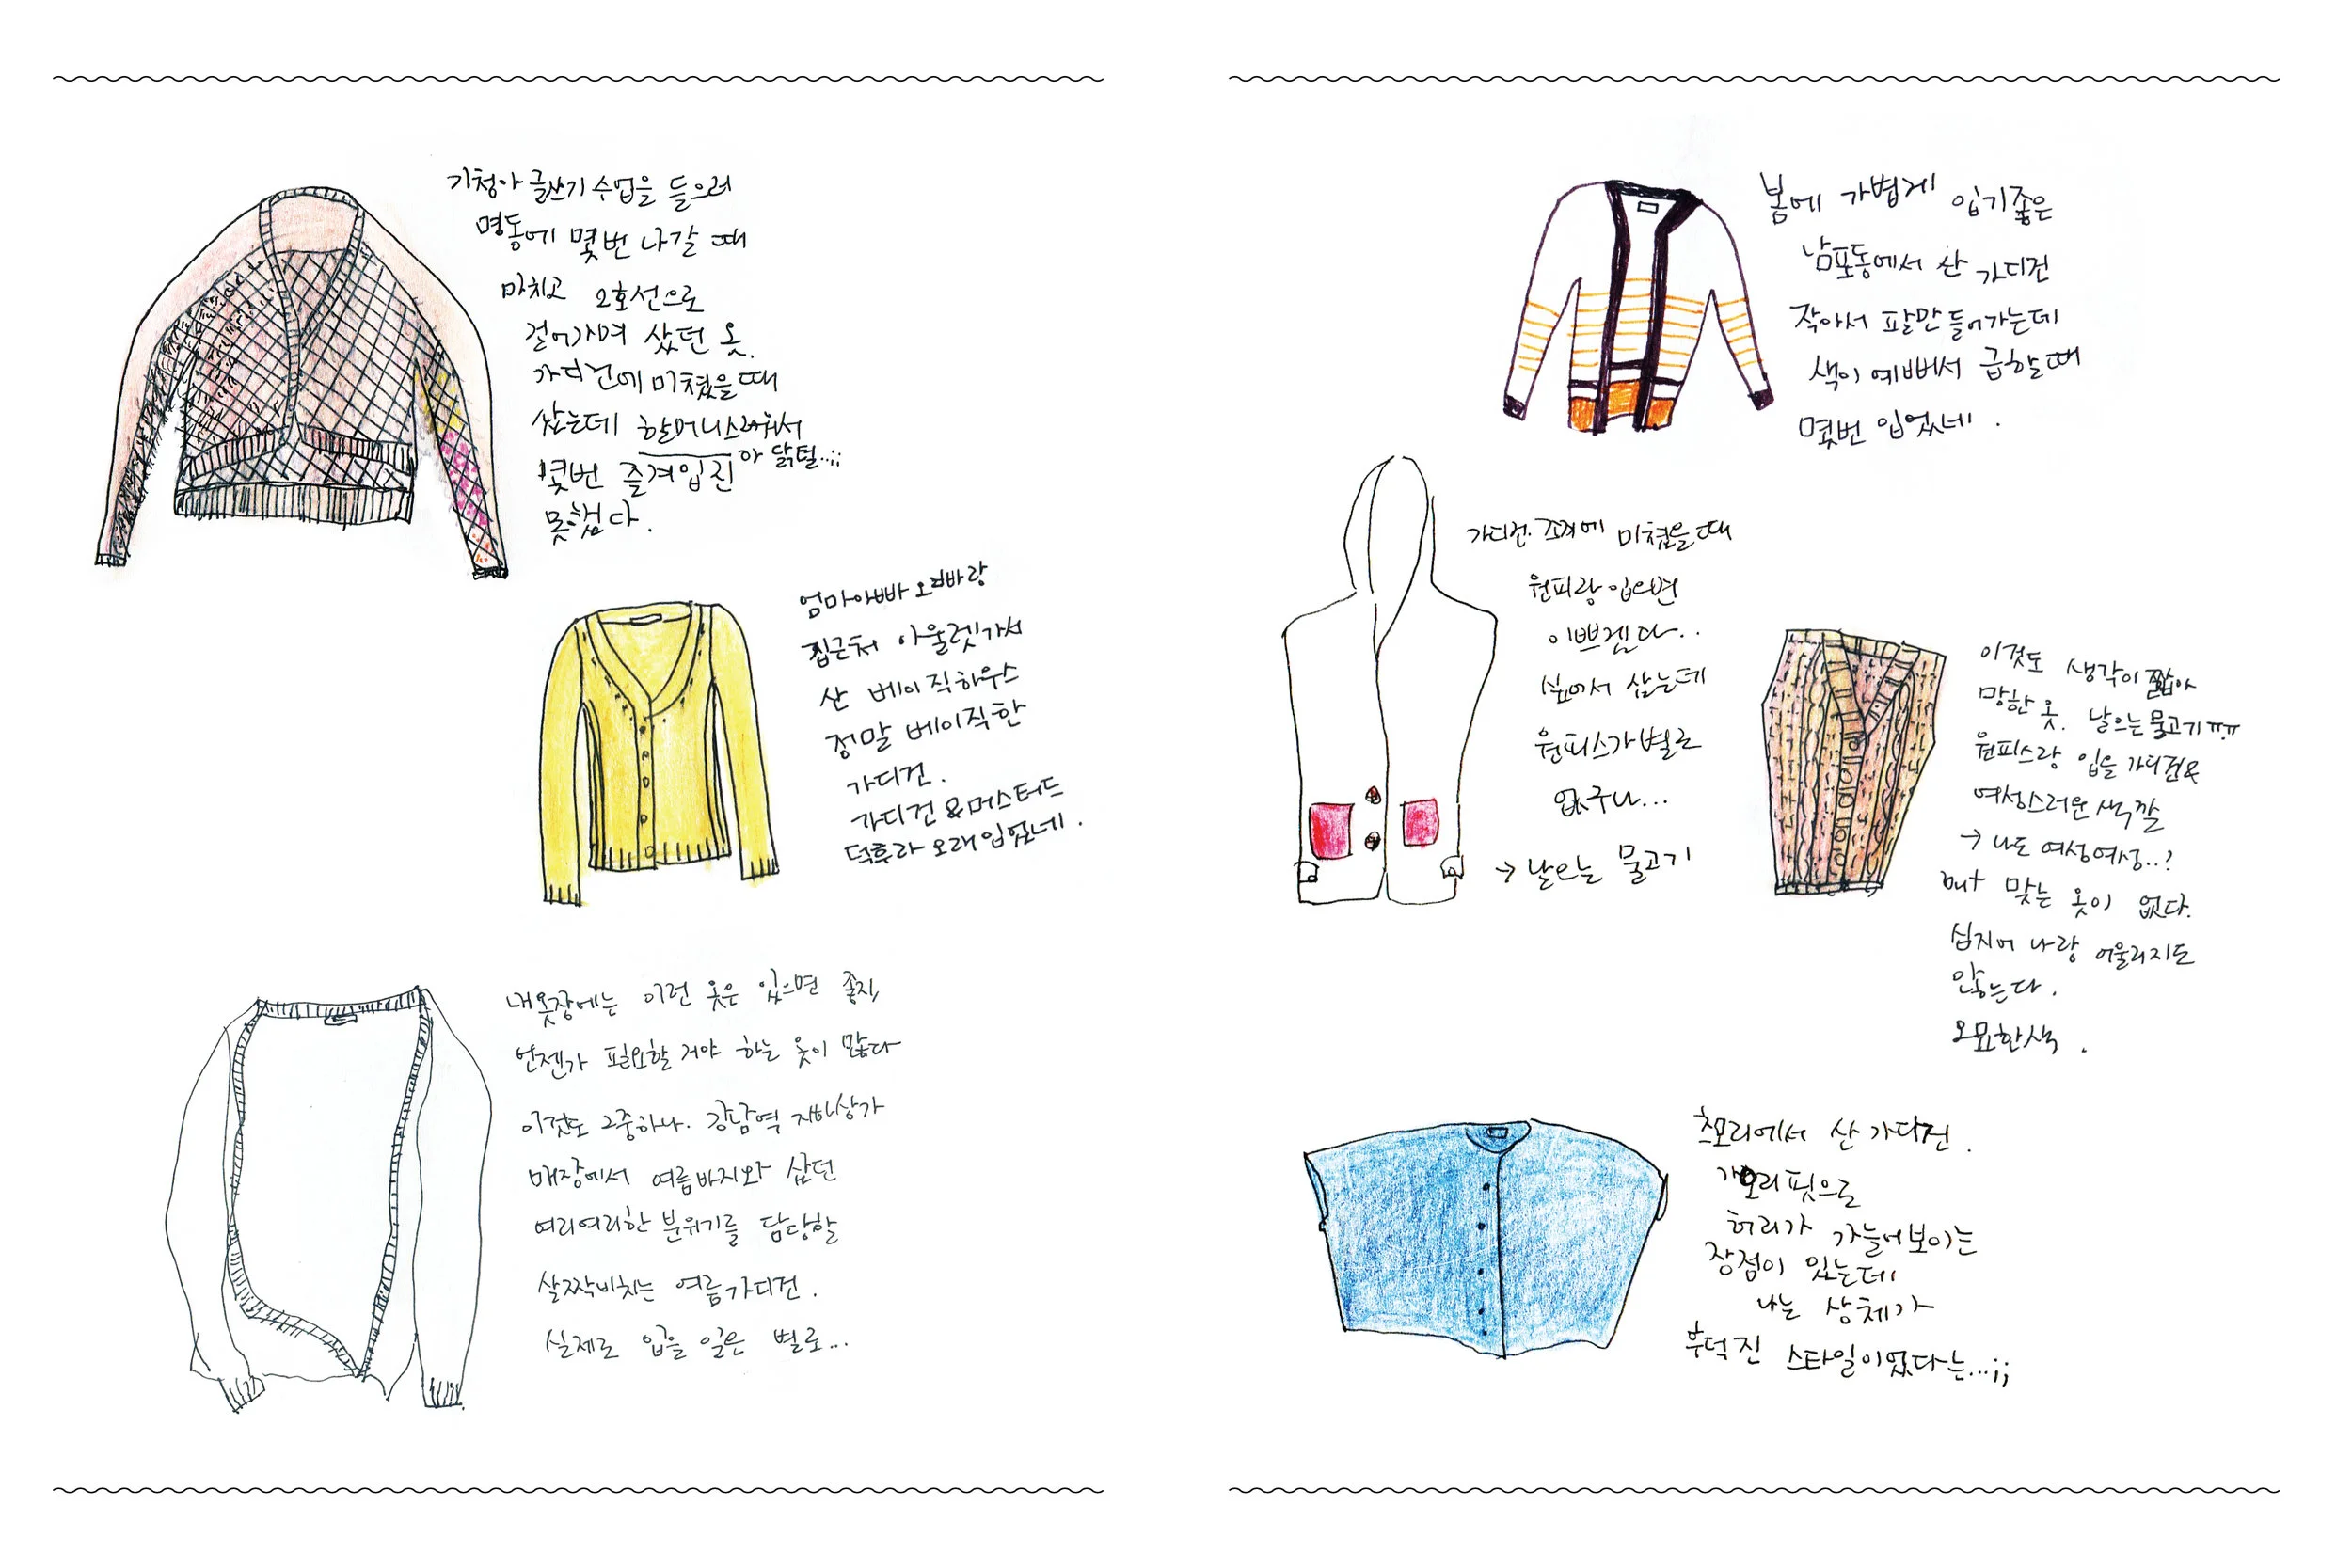 기청아 글쓰기 수업을 들으러
명동에 몇번 나갈 때
마치고 2호선으로
걸어가며 샀던 옷.
가디건에 미쳤을때
샀는데 할머니스러워서
몇번 즐겨입진 아 닭털..;;
못했다.
엄마아빠 오빠랑
집근처 아울렛가서
산 베이직하우스
정말 베이직한
가디건.
가디건 & 머스터드
덕후라 오래 입었네.
내 옷장에는 이런 옷은 있으면 좋지,
언젠가 필요할 거야 하는 옷이 많다
이것도 그중하나. 강남역 지하상가
매장에서 여름바지와 샀던
여리여리한 분위기를 담당할
살짝비치는 여름가디건.
실제로 입을 일은 별로...
봄에 가볍게 입기좋은
남포동에서 산 가디건
작아서 팔만 들어가는데
색이 예뻐서 급할때
몇번 입었네.
가디건. 조끼에 미쳤을때
원피랑 입으면
이쁘겠다..
싶어서 샀는데
원피스가 별로
없구나...
→ 날으는 물고기
이것도 생각이 짧아
망한 옷. 날으는물고기ㅠㅠ
원피스랑 입을 가디건&
여성스러운 색깔
→ 나도 여성여성..?
but 맞는 옷이 없다.
심지어 나랑 어울리지도
않는다.
오묘한색.
츠모리에서 산 가디건.
가오리핏으로
허리가 가늘어보이는
장점이 있는데
나는 상체가
후덕진 스타일이었다는...;;